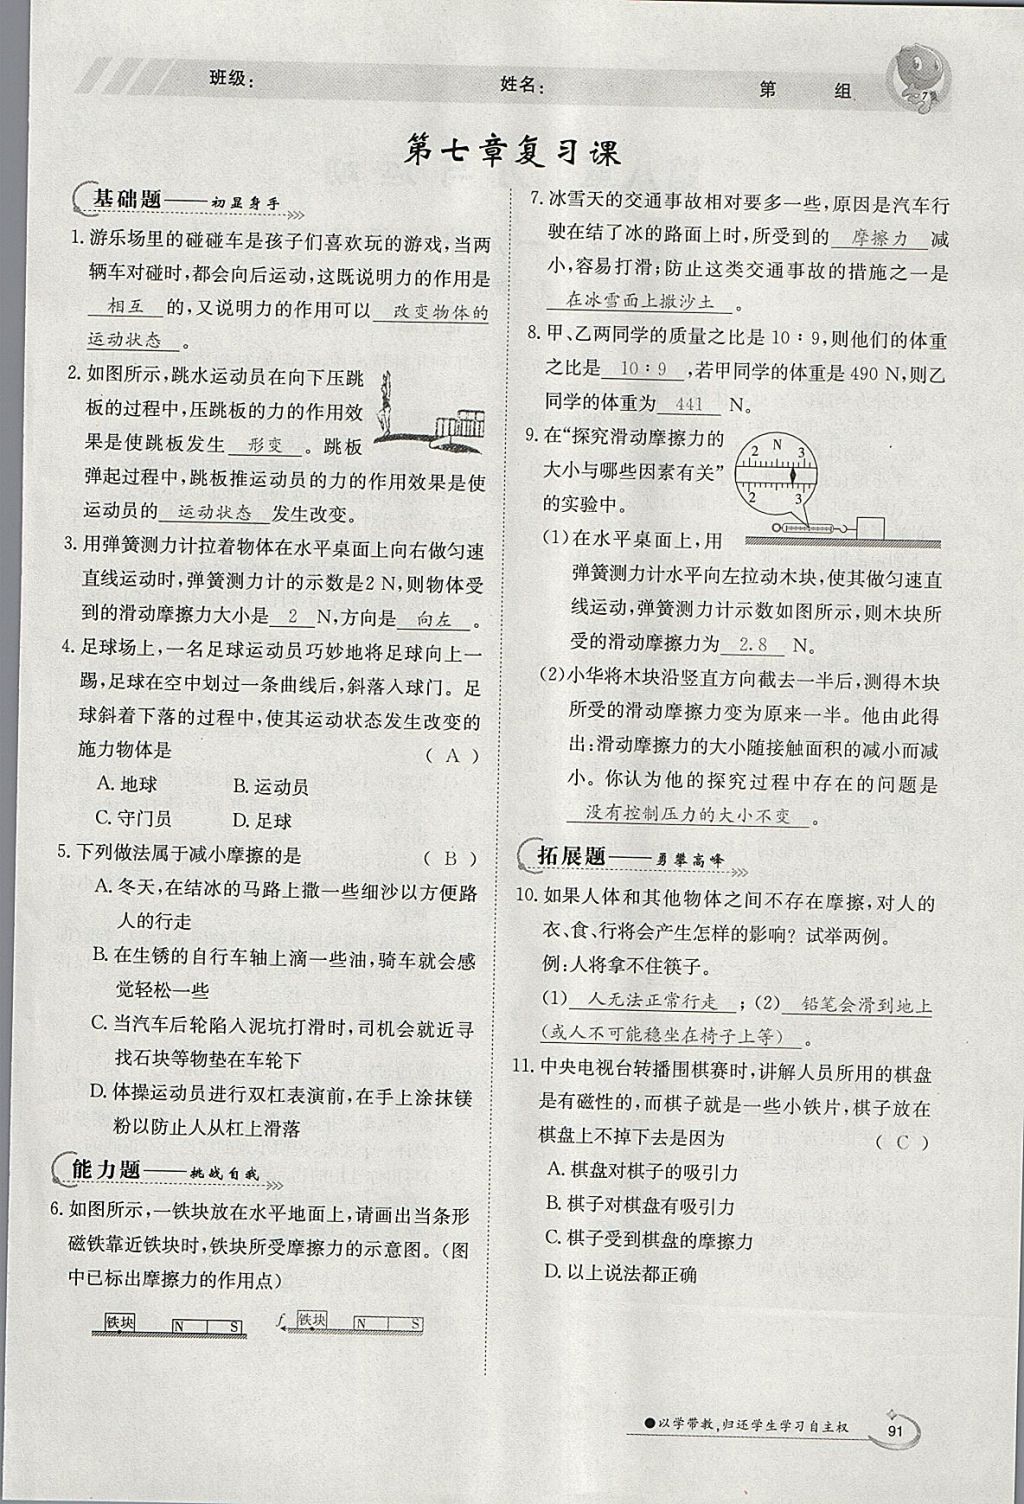 班级：
姓名：
第 组
第七章复习课
基础题——初显身手
1. 游乐场里的碰碰车是孩子们喜欢玩的游戏，当两
辆车对碰时，都会向后运动，这既说明力的作用是
相互 的，又说明力的作用可以 改变物体的
运动状态 。
2. 如图所示，跳水运动员在向下压跳
板的过程中，压跳板的力的作用效
果是使跳板发生 形变 。跳板
弹起过程中，跳板推运动员的力的作用效果是使
运动员的 运动状态 发生改变。
3. 用弹簧测力计拉着物体在水平桌面上向右做匀速
直线运动时，弹簧测力计的示数是2 N，则物体受
到的滑动摩擦力大小是 2 N，方向是 向左 。
4. 足球场上，一名足球运动员巧妙地将足球向上一
踢，足球在空中划过一条曲线后，斜落入球门。足
球斜着下落的过程中，使其运动状态发生改变的
施力物体是 （ A ）
A. 地球 B. 运动员
C. 守门员 D. 足球
5. 下列做法属于减小摩擦的是 （ B ）
A. 冬天，在结冰的马路上撒一些细沙以方便路
人的行走
B. 在生锈的自行车轴上滴一些油，骑车就会感
觉轻松一些
C. 当汽车后轮陷入泥坑打滑时，司机会就近寻
找石块等物垫在车轮下
D. 体操运动员进行双杠表演前，在手上涂抹镁
粉以防止人从杠上滑落
能力题——挑战自我
6. 如图所示，一铁块放在水平地面上，请画出当条形
磁铁靠近铁块时，铁块所受摩擦力的示意图。（图
中已标出摩擦力的作用点）
铁块 N S f 铁块 N S
7. 冰雪天的交通事故相对要多一些，原因是汽车行
驶在结了冰的路面上时，所受到的 摩擦力 减
小，容易打滑；防止这类交通事故的措施之一是
在冰雪面上撒沙土 。
8. 甲、乙两同学的质量之比是 10∶9，则他们的体重
之比是 10∶9 ，若甲同学的体重是 490 N，则乙
同学的体重为 441 N。
9. 在“探究滑动摩擦力的
大小与哪些因素有关”
的实验中。
2 N 3
2 3
(1)在水平桌面上，用
弹簧测力计水平向左拉动木块，使其做匀速直
线运动，弹簧测力计示数如图所示，则木块所
受的滑动摩擦力为 2.8 N。
(2)小华将木块沿竖直方向截去一半后，测得木块
所受的滑动摩擦力变为原来一半。他由此得
出：滑动摩擦力的大小随接触面积的减小而减
小。你认为他的探究过程中存在的问题是
没有控制压力的大小不变 。
拓展题——勇攀高峰
10. 如果人体和其他物体之间不存在摩擦，对人的
衣、食、行将会产生怎样的影响？试举两例。
例：人将拿不住筷子。
(1) 人无法正常行走 ；(2) 铅笔会滑到地上
（或人不可能稳坐在椅子上等） 。
11. 中央电视台转播围棋赛时，讲解人员所用的棋盘
是有磁性的，而棋子就是一些小铁片，棋子放在
棋盘上不掉下去是因为 （ C ）
A. 棋盘对棋子的吸引力
B. 棋子对棋盘有吸引力
C. 棋子受到棋盘的摩擦力
D. 以上说法都正确
●以学带教，归还学生学习自主权
91